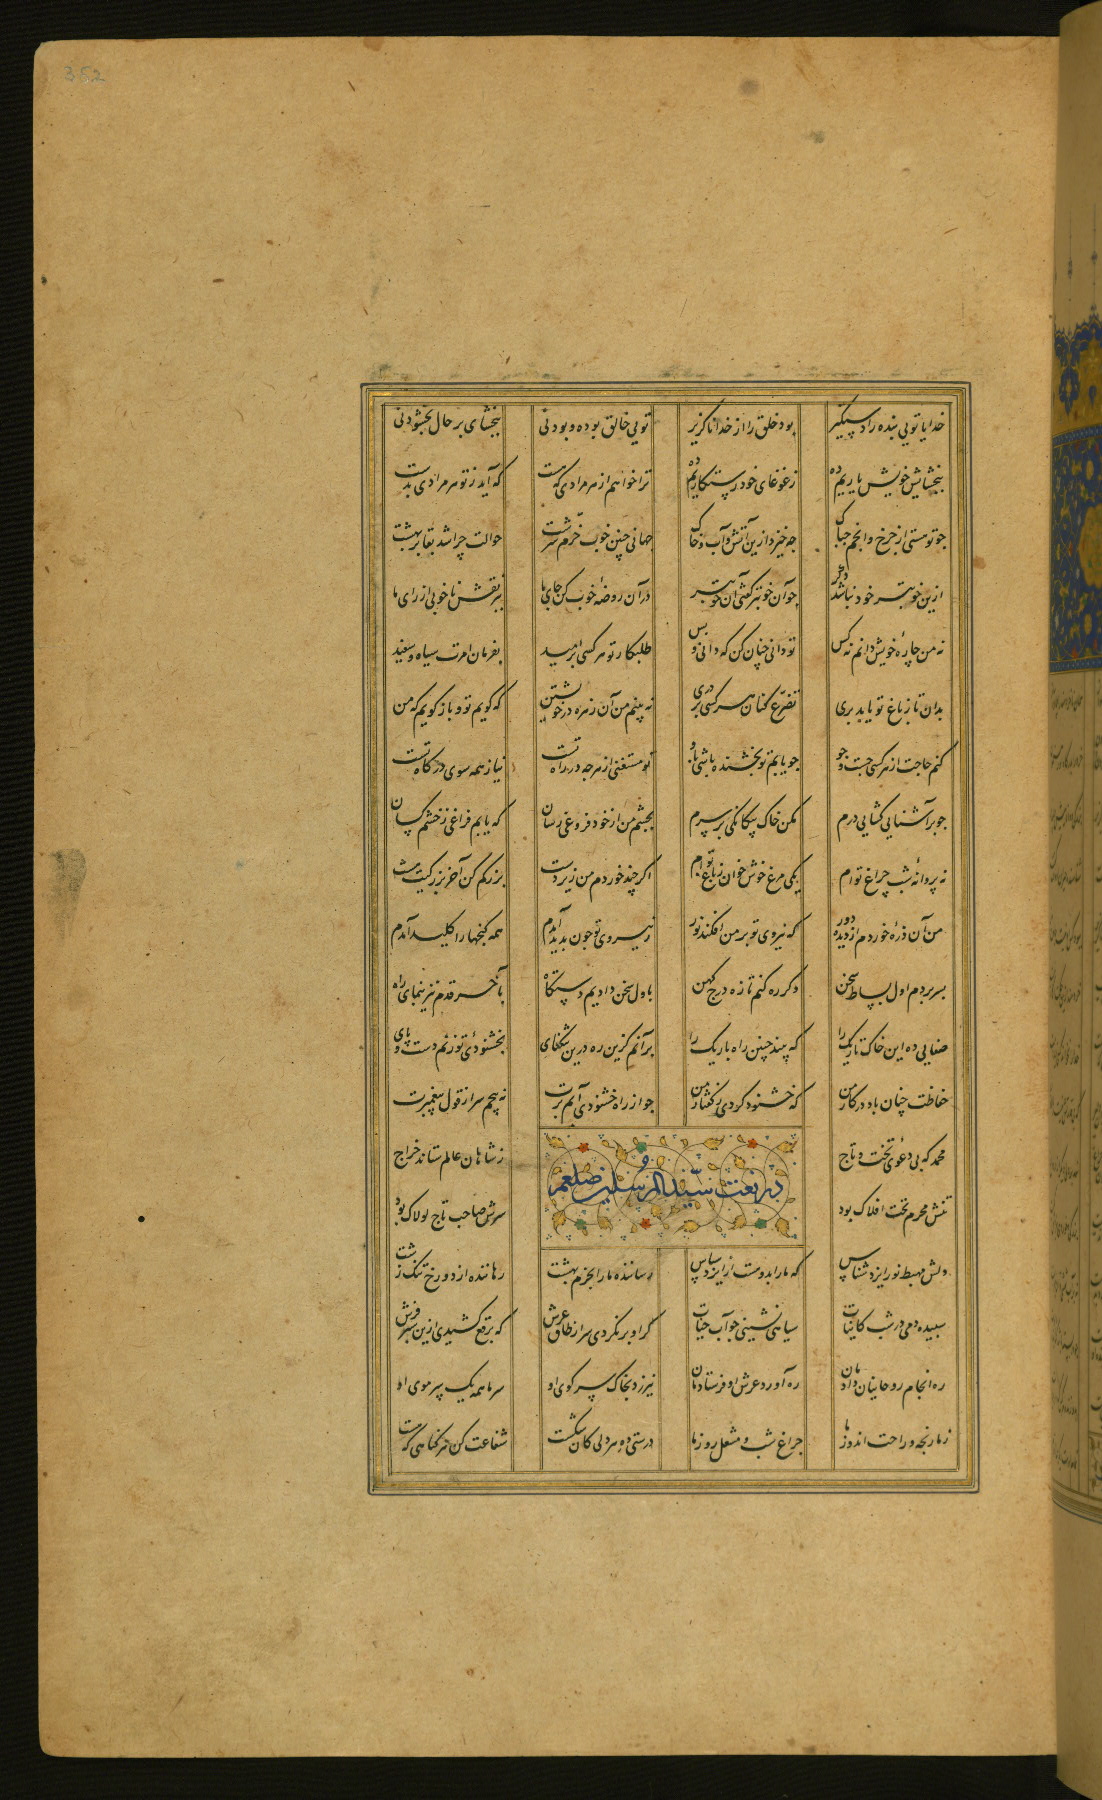 352
خدایا تویی بنده را دستگیر
بود خلق را از خدا ناگزیر
تویی خالق بوده و بودنی
ببخشای بر حال بخشودنی
ببخشایش خویش یاریم ده
ز غوغای خود رستگاریم ده
ترا خواهم از هر مرادی که هست
که آید ز تو هر مرادی بدست
چو تو هستی از چرخ و انجم چه باک
چه خیزد ازین آتش و آب و خاک
جهانی چنین خوب خرم سرشت
حوالت چرا شد بقا بر بهشت
ازین خوبتر خود نباشد دگر
چو آن خوبتر گفتی آن خوبتر
در آن روضهٔ خوب کن جای ما
ببر نقش ناخوبی از رای ما
نه من چارهٔ خویش دانم نه کس
تو دانی چنان کن که دانی و بس
طلبکار تو هر کسی بر امید
بفرمان امرت سیاه و سفید
بدان تا ز باغ تو یابد بری
تضرع کنان هر کسی بر دری
نه بینم من آن زهره در خویشتن
که گویم تو و باز گویم که من
کنم حاجت از هر کسی جست و جو
چو یابم تو بخشنده باشی نه او
تو مستغنی از هر چه در راه تست
نیاز همه سوی درگاه تست
چو بر آشنایی گشایی درم
مکن خاک بیگانگی بر سرم
بچشم من از خود فروغی رسان
که یابم فراغی ز خشم کسان
نه پروانهٔ شب چراغ توام
یکی مرغ خوش خوان ز باغ توام
اگر چند خوردم من زیردست
بزرگم کن آخر بزرگیت هست
من آن ذرهٔ خوردم از دیده دور
که نیروی تو بر من افکند نور
ز نیروی تو چون بدید آمدم
همه گنجها را کلید آمدم
بسر بردم اول بساط سخن
دگر ره کنم تازه درج کهن
باول سخن دادیم دستگاه
بآخر قدم نیز بنمای راه
صفایی ده این خاک تاریک را
که بیند چنین راه باریک را
بر آنم کزین ره درین تنگنای
بخشنودی تو زنم دست و پای
حفاظت چنان باد در کار من
که خشنود گردی ز گفتار من
چو از راه خشنودی آیم برت
نه پیچم سر از قول پیغمبرت
در نعت سید المرسلین صلعم
محمد که بی دعوی تخت و تاج
ز شاهان عالم ستاند خراج
تنش محرم تخت افلاک بود
سرش صاحب تاج لولاک بود
دلش مهبط نور ایزد شناس
که ما را بدوست از ایزد سپاس
رسانندهٔ ما را بخرم بهشت
رهاننده از دوزخ تنگ زشت
سپیده دمی در شب کاینات
سیاهی نشینی چو آب حیات
گر او بر نکردی سر از طاق عرش
که برقع کشیدی ازین سبز فرش
ره انجام روحانیان داد مان
ره آورد عرش او فرستاد مان
نیرزد بخاک سر کوی او
سر ما همه یک سر موی او
ز ما رنجه و راحت اندوز ما
چراغ شب و مشعل روز ما
درستی ده هر دلی کان شکست
شفاعت کن هر گناهی که هست